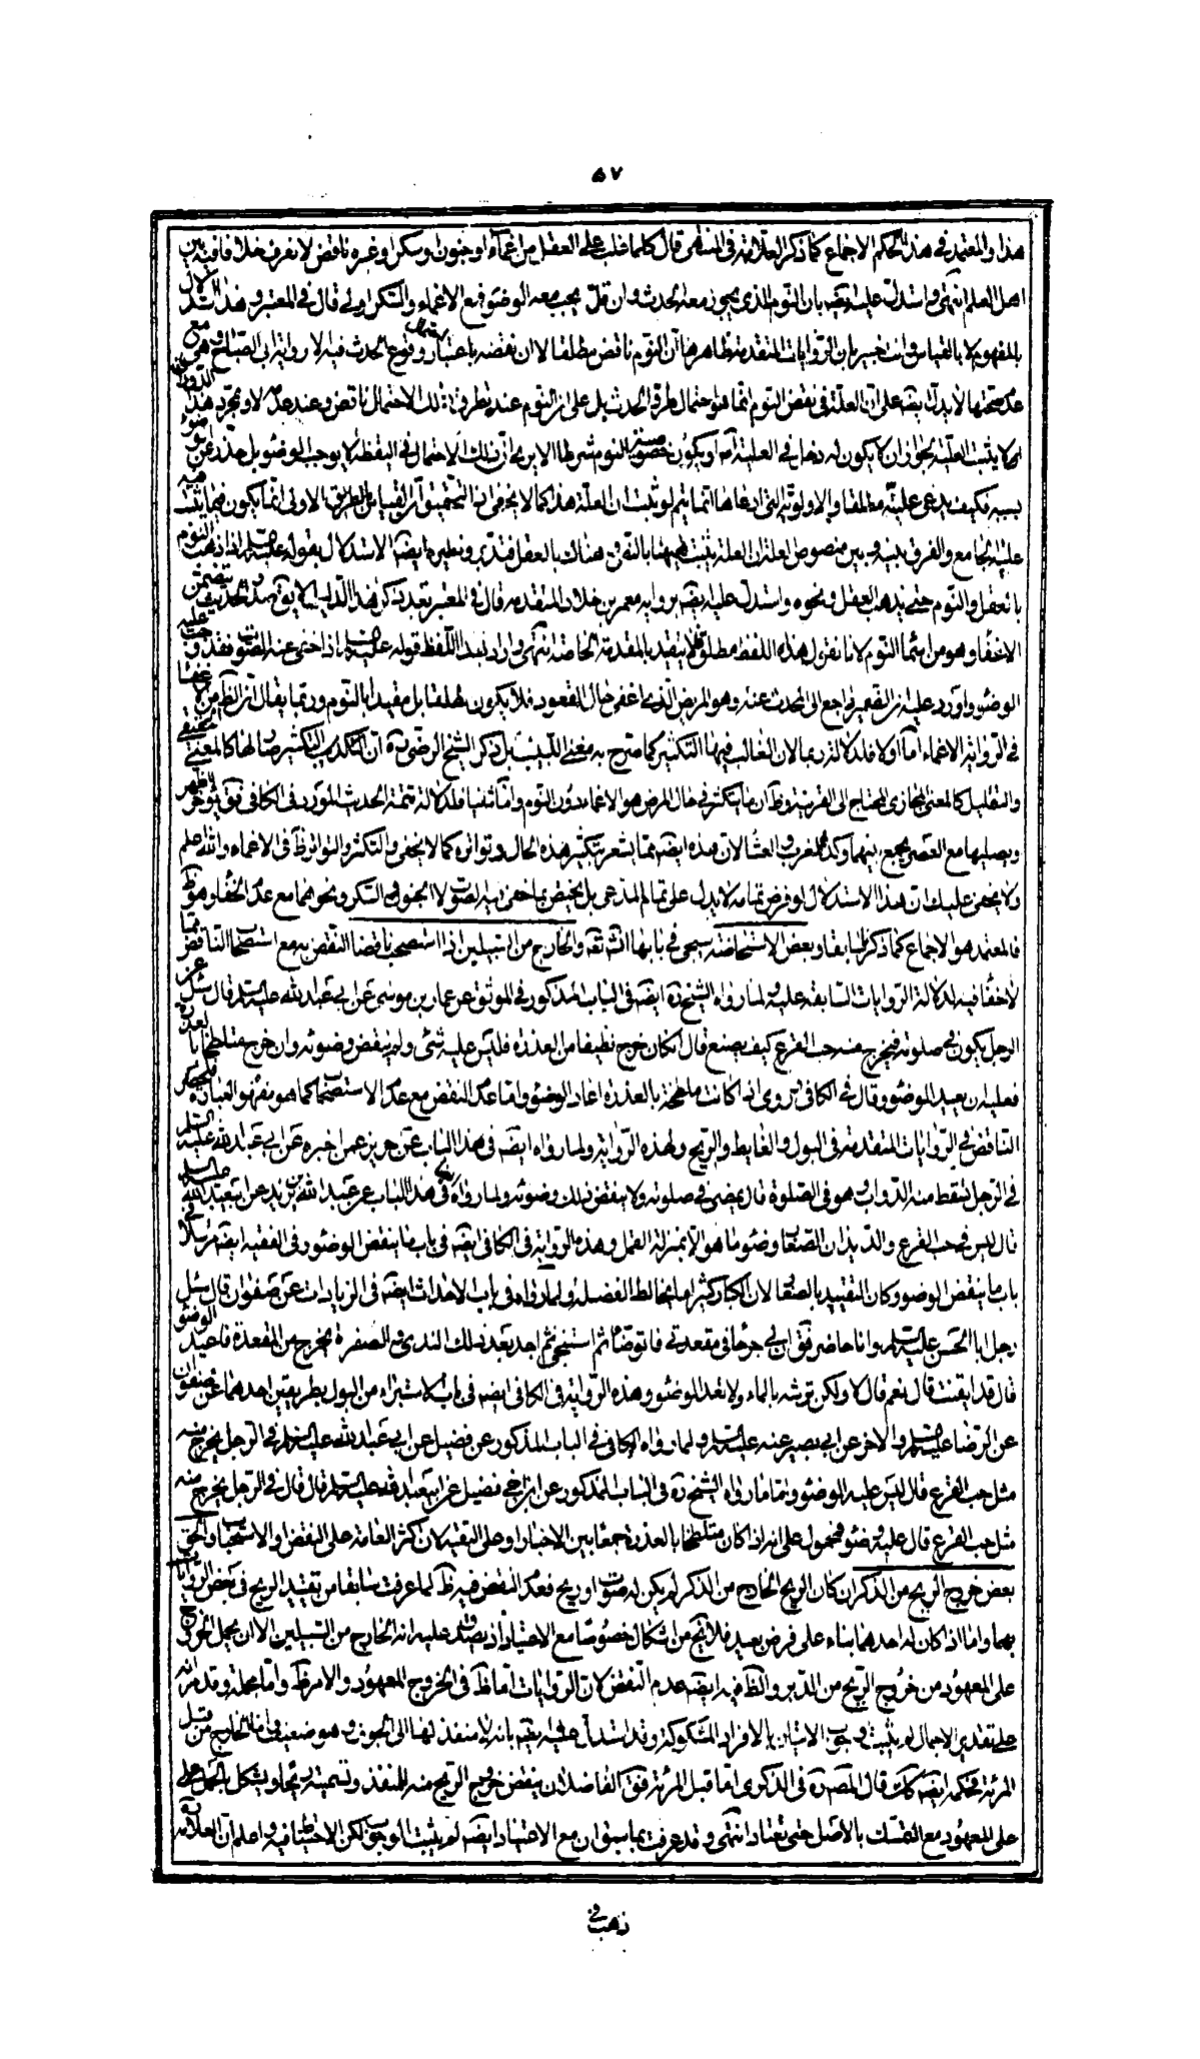 ٥٧
هذا والمعتمد في هذا الحكم الاجماع كما ذكر العلامة في المنتهى قال كلما غلب على العقل من اغماء او جنون او سكر او غيره ناقض لا نعرف خلافا فيه بين
اهل العلم انتهى واستدل عليه ايضه بان النوم الذي يجوز معه الحدث وان قل يجب معه الوضوء فمع الاغماء والسكر اولى قال في المعتبر وهذا استدلال
بالمفهوم لا بالقياس وانت خبير بان الروايات المتقدمة ظاهرها ان النوم ناقض مطلقا لا ان نقضه باعتبار وقوع الحدث فيه الا رواية ابي الصباح وهي مع
عدم صحتها لا يدل ايضه على ان العلة في نقض النوم انما هو احتمال طرو الحدث بل على ان النوم عند تطرق ذلك الاحتمال ناقض وعند عدمه لا ومجرد هذا
لا يثبت العلية لجواز ان لا يكون له دخل في العلية او يكون خصوصية النوم شرطا الا يرى ان ذلك الاحتمال في اليقظة لا يوجب الوضوء
بسببه فكيف يدعى عليته مطلقا والاولوية التي ادعاها انما يتم لو ثبت ان العلة هذا كما لا يخفى في التحقيق ان القياس بالطريق الاولى انما يكون فيما يثبت
علية الجامع والفرق بينه وبين منصوص العلة ان العلة يثبت ههنا بالنص وهناك بالعقل فتدبر ونظيره ايضه الاستدلال بقوله عليه السلم اذا ذهب النوم
بالعقل والنوم حتى يذهب العقل ونحوه واستدل عليه ايضه برواية معمر بن خلاد المتقدمة قال في المعتبر بعد ذكر هذا الدليل لا يق هذا الحديث يتضمن
الاغفاء وهو من اسماء النوم لانا نقول هذا اللفظ مطلق فلا يتقيد بالمقدمة الخاصة انتهى واراد بهذا اللفظ قوله عليه السلم اذا خفى عنه الصوت فقد وجب عليه
الوضوء واورد عليه ان الضمير راجع الى المحدث عنه وهو المريض الذي اغفى حال القعود فلا يكون مطلقا بل مقيدا بالنوم وربما يقال ان الظ من الاغفاء
في الرواية الاغماء اما اولا فلدلالة ربما لان الغالب فيها التكثير كما صرح به مغني اللبيب بل ذكر الشيخ الرضي ره ان التكثير صار لها كالمعنى الحقيقي
والتقليل كالمعنى المجازي المحتاج الى القرينة وظ ان ما يتكثر في حال المرض هو الاغماء دون النوم واما ثانيا فلدلالة تتمة الحديث المورد في الكافي فق يؤخر الظهر
ويصليها مع العصر يجمع بينهما وكذا المغرب والعشاء لان هذه ايضه مما يشعر بتكثير هذه الحال وتواتره كما لا يخفى والتكثر والتواتر ظ في الاغماء والله اعلم
ولا يخفى عليك ان هذا الاستدلال لو فرض تمامه لا يدل على تمام المدعى بل يختص بما خفى فيه الصوت لا الجنون والسكر ونحوهما مع عدم الخفاء وهو ظ
فالمعتمد هو الاجماع كما ذكر سابقا وبعض الاستحاضة سيجئ في بابها انش تعه والخارج من السبيلين اذا استصحب ناقضا النقض به مع استصحاب الناقض مما
لا خفاء فيه لدلالة الروايات السابقة عليه ولما رواه الشيخ ره ايضه في الباب المذكور في الموثق عن عمار بن موسى عن ابي عبد الله عليه السلم قال سئل عن
الرجل يكون في صلوته فيخرج منه حب القرع كيف يصنع قال ان كان خرج نظيفا من العذرة فليس عليه شئ ولم ينقض وضوئه وان خرج متلطخا بالعذرة
فعليه ان يعيد الوضوء وقال في الكافي وروى اذا كانت ملطخة بالعذرة اعاد الوضوء واما عدم النقض مع عدم الاستصحاب كما هو مفهوم العبارة فلحصر
الناقض في الروايات المتقدمة في البول والغايط والريح ولهذه الرواية ولما رواه ايضه في هذا الباب عن حريز عمن اخبره عن ابي عبد الله عليه السلم
في الرجل يسقط منه الدواب وهو في الصلوة قال يمضي في صلوته ولا ينقض ذلك وضوئه ولما رواه في هذا الباب عن عبد الله بن يزيد عن ابي عبد الله عليه السلم
قال ليس في حب القرع والديدان الصغار وضوء ما هو الا بمنزلة القمل وهذه الرواية في الكافي ايضه في باب ما ينقض الوضوء وفي الفقيه ايضه مرسلا في
باب ما ينقض الوضوء وكان التقييد بالصغار لان الكبار كثيرا ما يخالط الفضلة ولما رواه في باب الاحداث ايضه في الزيادات عن صفوان قال سئل
رجل ابا الحسن عليه السلم وانا حاضر فق ان بي جرحا في مقعدتي فاتوضأ ثم استنجي ثم اجد بعد ذلك الندى والصفرة يخرج من المقعدة فاعيد الوضوء
قال قد ايقنت قال نعم قال لا ولكن ترشه بالماء ولا تعد الوضوء وهذه الرواية في الكافي ايضه في باب الاستبراء من البول بطريقين احدهما عن صفوان
عن الرضا عليه السلم والاخر عن ابي بصير عنه عليه السلم ولما رواه الكافي في الباب المذكور عن فضيل عن ابي عبد الله عليه السلم في الرجل يخرج منه
مثل حب القرع قال ليس عليه الوضوء واما ما رواه الشيخ ره في الباب المذكور عن ابن اخي فضيل عن ابي عبد الله عليه السلم قال قال في الرجل يخرج منه
مثل حب القرع قال عليه وضوء فمحمول على انه اذا كان متلطخا بالعذرة جمعا بين الاخبار او على التقية لان اكثر العامة على النقض والاستحباب والحق
بعض خروج الريح من الذكر ان كان الريح الخارج من الذكر لم يكن له صوت او ريح فعدم النقض فيه ظ لما عرفت سابقا من تقييد الريح في بعض الروايات
بهما واما اذا كان له احدهما بناء على فرض بعيد فلا يخ من اشكال خصوصا مع الاعتياد اذ يصدق عليه انه الخارج من السبيلين الا ان يحمل الخروج
على المعهود من خروج الريح من الدبر والظ فيه ايضه عدم النقض لان الروايات اما ظ في الخروج المعهود والامر ظ واما مجملة وقد مر انه
على تقدير الاجمال لم يثبت وجوب الاتيان بالافراد المشكوكة وقد استدل عليه ايضه بانه لا منفذ لها الى الجوف وهو ضعيف واما الخارج من قبل
المرئة فحكمه ايضه كك قال المصره في الذكرى اما قبل المرئة فق الفاضلان ينقض خروج الريح منه للمنفذ وتسميته ريحا ويشكل بالحمل على
على المعهود مع التمسك بالاصل حتى تعتاد انتهى وقد عرفت بما سبق ان مع الاعتياد ايضه لم يثبت الوجوب لكن الاحتياط فيه واعلم ان العلامة ره
ذهب في